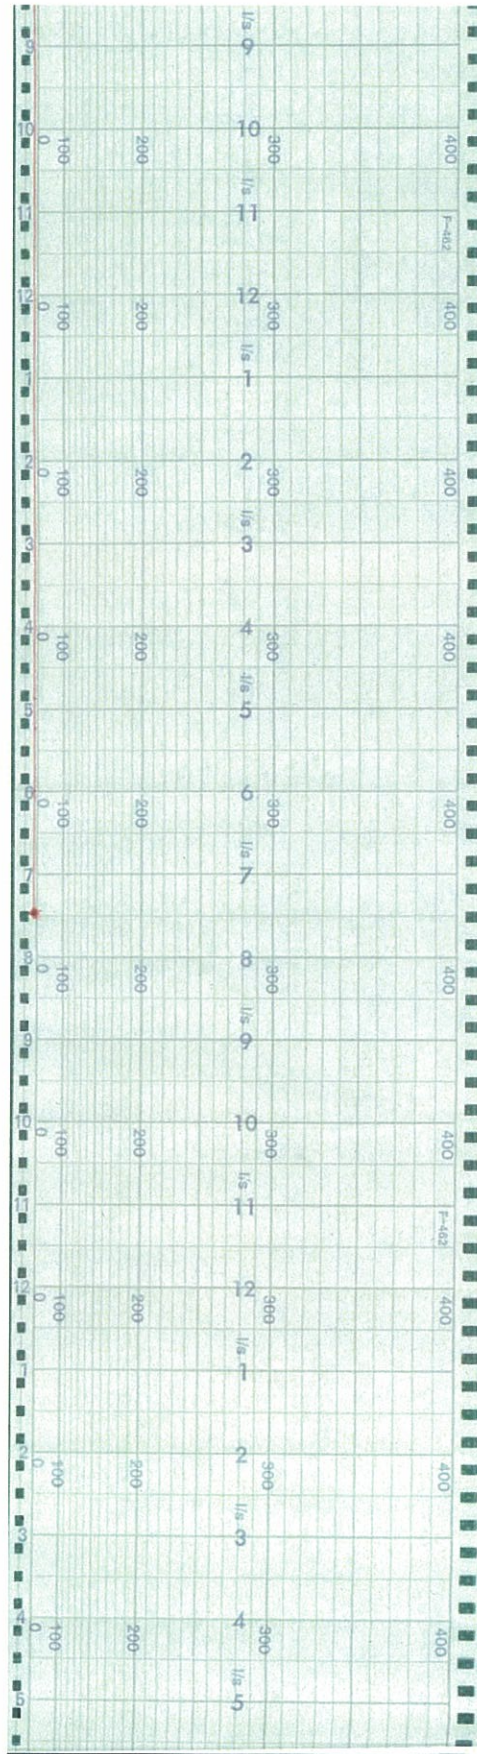 l/s
9 9
10 0 100 200 10 300 400
l/s
11 11 F-462
12 0 100 200 12 300 400
l/s
1 1
2 0 100 200 2 300 400
l/s
3 3
4 0 100 200 4 300 400
l/s
5 5
6 0 100 200 6 300 400
l/s
7 7
8 0 100 200 8 300 400
l/s
9 9
10 0 100 200 10 300 400
l/s
11 11 F-462
12 0 100 200 12 300 400
l/s
1 1
2 0 100 200 2 300 400
l/s
3 3
4 0 100 200 4 300 400
l/s
5 5